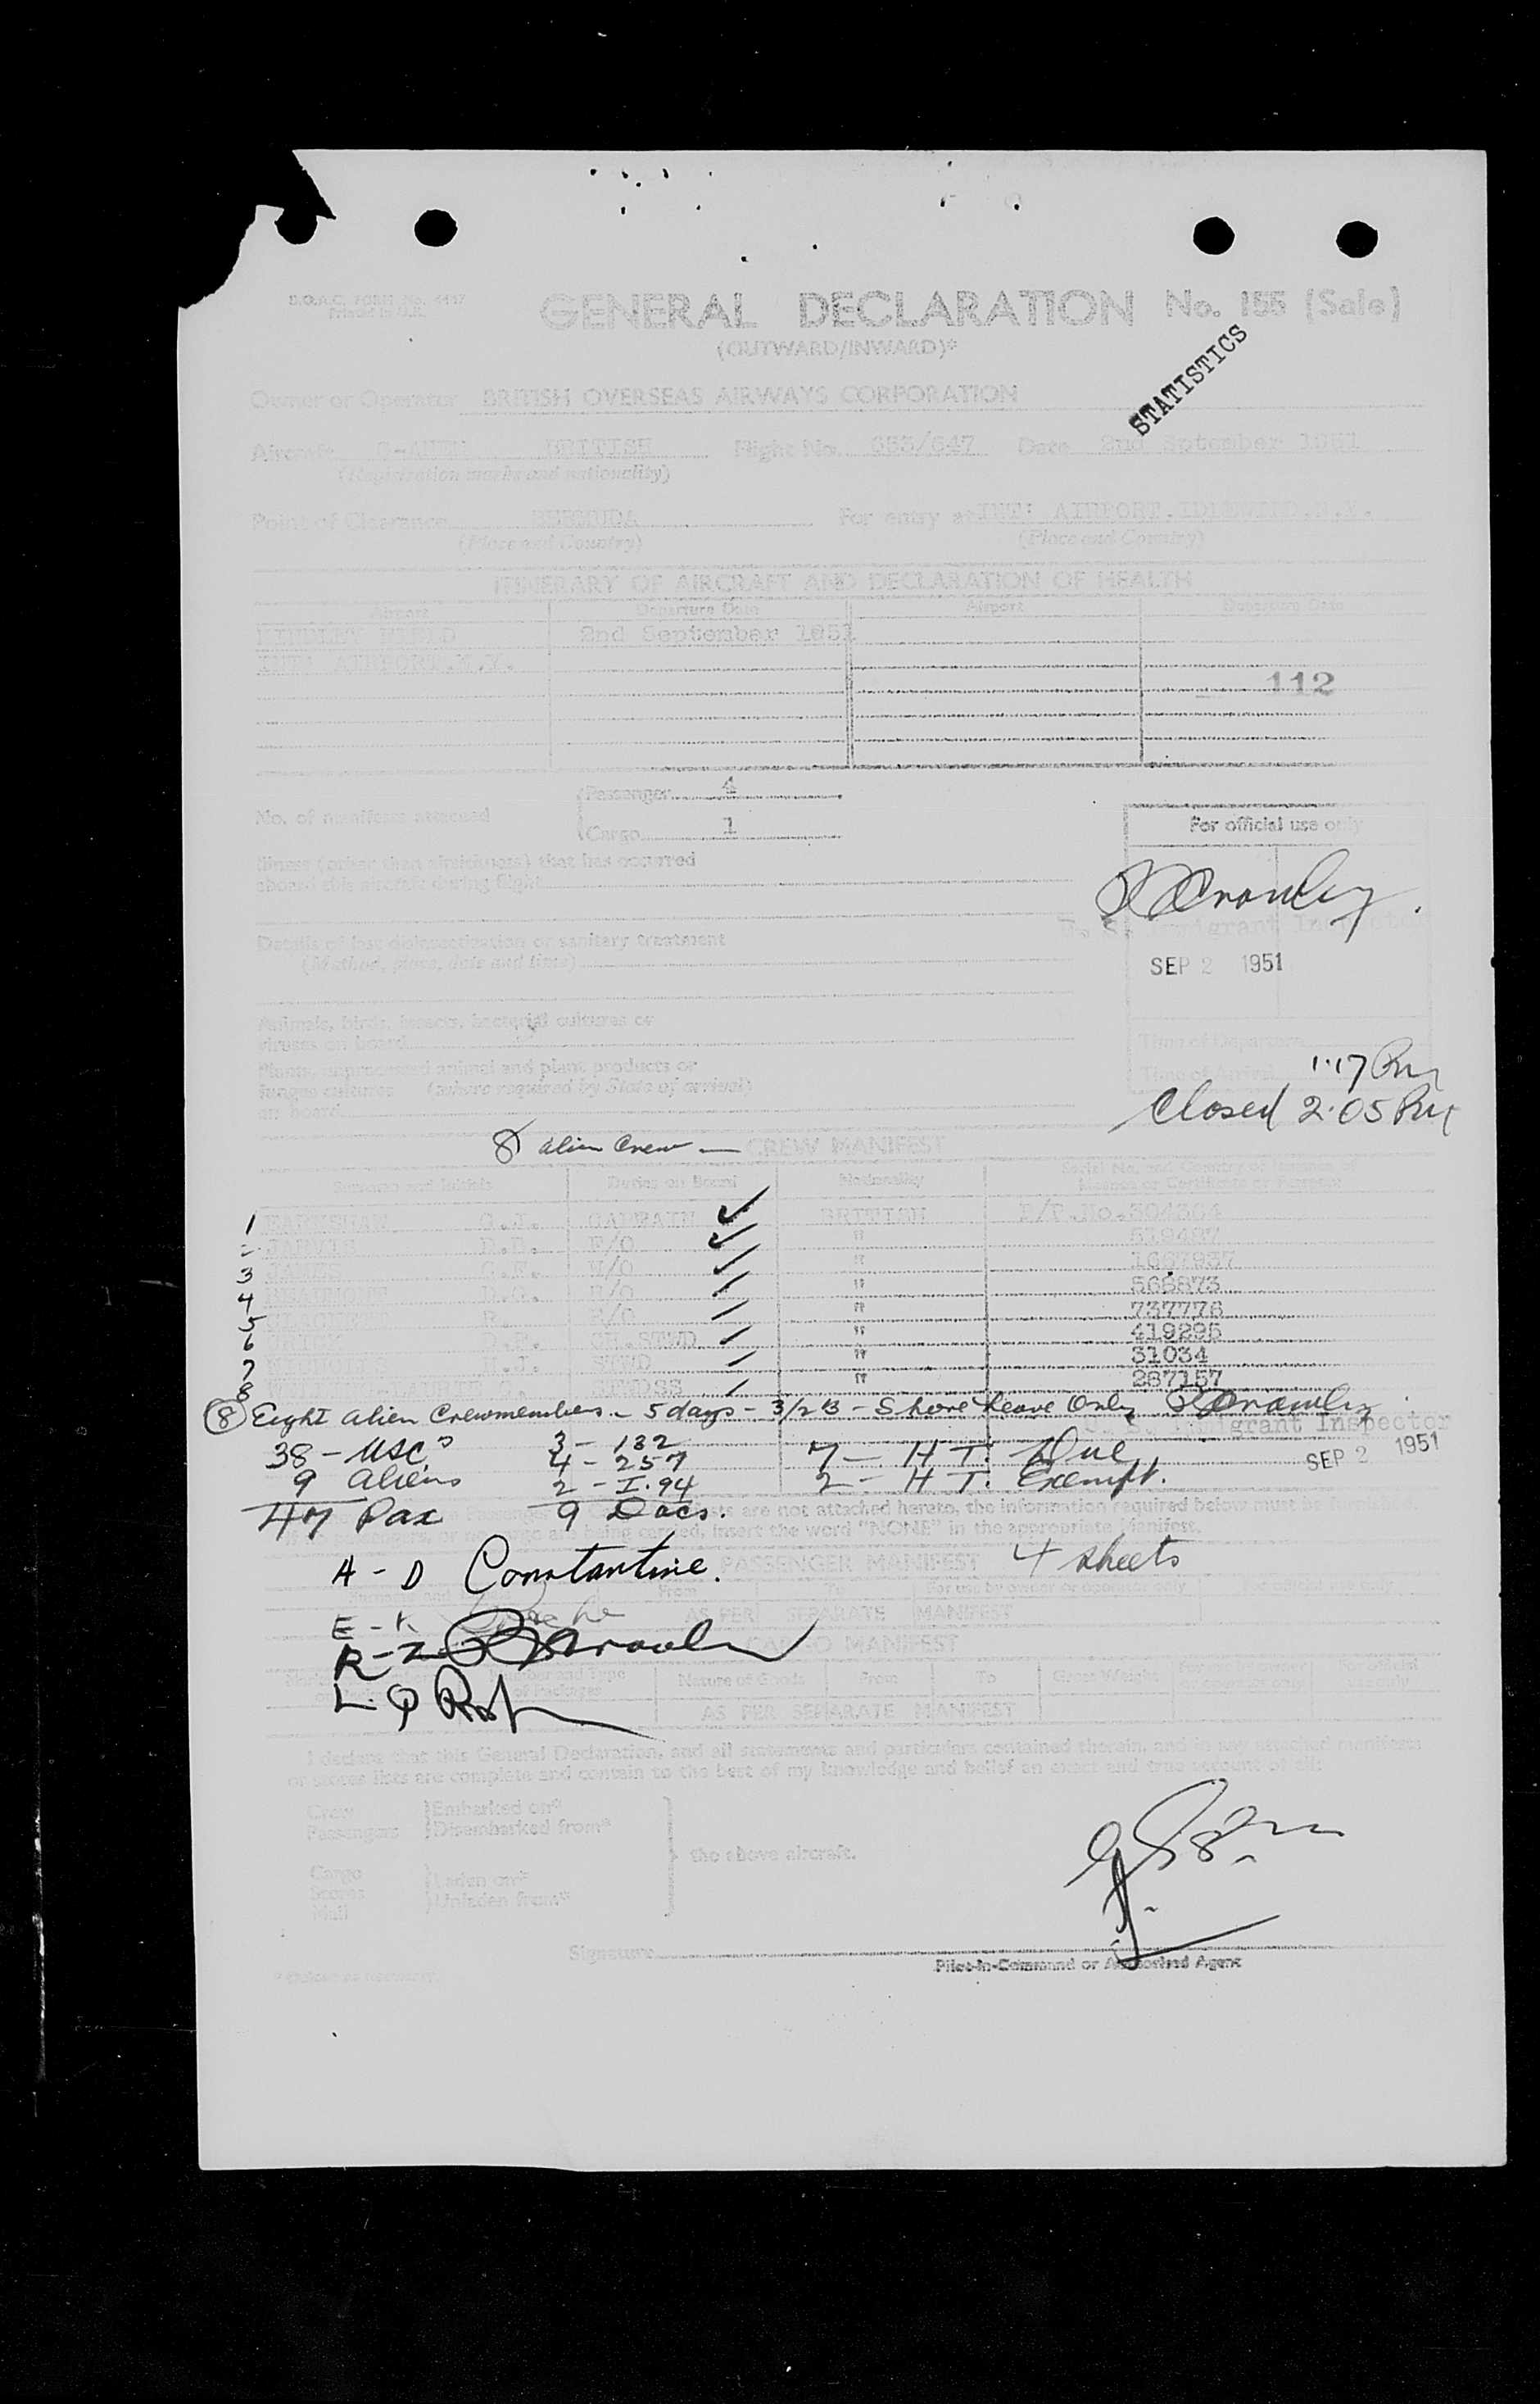 B.O.A.C. FORM No. 4447
Printed in U.K.
GENERAL DECLARATION No. 155 (Sale)
(OUTWARD/INWARD)*
STATISTICS
Owner or Operator BRITISH OVERSEAS AIRWAYS CORPORATION
Aircraft BRITISH Flight No. 653/647 Date 2nd Sptember 1951
(Registration marks and nationality)
Point of Clearance BERMUDA For entry at INT: AIRPORT. IDLEWILD.N.Y.
(Place and Country) (Place and Country)
ITINERARY OF AIRCRAFT AND DECLARATION OF HEALTH
Airport Departure Date Airport Departure Date
KINDLEY FIELD 2nd September 1951
INT: AIRPORT.N.Y.
112
Passenger 4
No. of manifests attached
Cargo 1
For official use only
Illness (other than airsickness) that has occurred
aboard this aircraft during flight
Crowley
U. S. Immigrant Inspector
Details of last disinsectization or sanitary treatment
(Method, place, date and time)
SEP 2 1951
Animals, birds, insects, bacterial cultures or
viruses on board
Time of Departure
Plants, unprocessed animal and plant products or
fungus cultures (where required by State of arrival)
on board
Time of Arrival 1:17 Pm
Closed 2:05 Pm
8 alien Crew — CREW MANIFEST
Surname and Initials Duties on Board Nationality Serial No. and Country of Issuance of
License or Certificate or Passport
1 EARNSHAW G.J. CAPTAIN ✓ BRITISH P/P.No.304564
JARVIS F/O ✓ " 519487
3 JAMES ✓ " 1667937
4 ✓ " 568873
5 R. R/O ✓ " 737778
6 CH.STWD ✓ " 419295
7 STWD ✓ " 31034
8 STWDSS ✓ " 287157
(8) Eight alien Crewmembers - 5 days - 3/2 B - Shore Leave Only Crowley
U. S. Immigrant Inspector
38 - USC's 3 - 132 7 - H T. Due
SEP 2 1951
9 aliens 4 - 257 2 - H T. Exempt.
47 Pax 2 - I.94
9 Docs.
are not attached hereto, the information required below must be
being carried, insert the word "NONE" in the appropriate Manifest.
A - D Constantine. PASSENGER MANIFEST 4 sheets
From To For use by owner or operator only
E - K
AS PER SEPARATE MANIFEST
R - Z Crowley CARGO MANIFEST
Number and Type
of Packages Nature of Goods From To Gross Weight
L. Q
AS PER SEPARATE MANIFEST
I declare that this General Declaration, and all statements and particulars contained therein, and in any attached manifests
or stores lists are complete and contain to the best of my knowledge and belief an exact and true account of all:
Crew Embarked on*
Passengers Disembarked from*
the above aircraft.
Cargo Laden on*
Stores Unladen from*
Mail
Signature
Pilot-in-Command or Authorised Agent
* Delete as necessary.